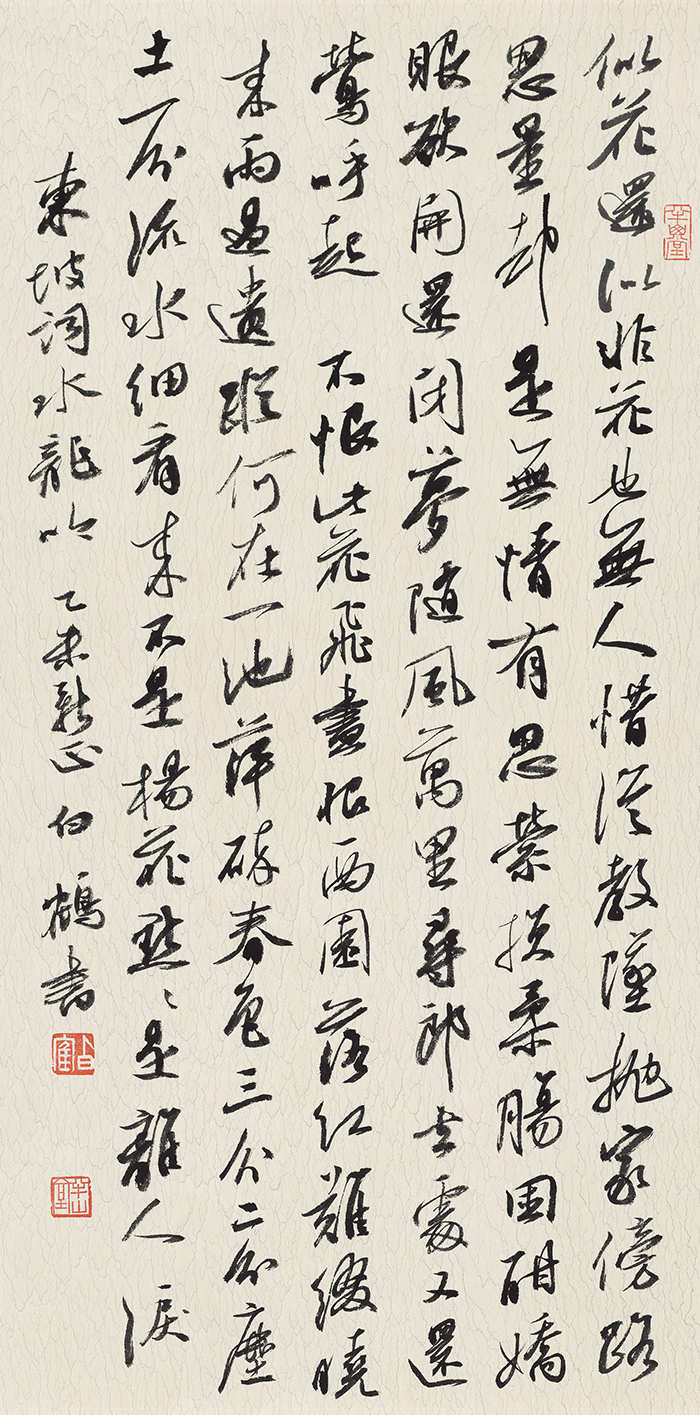 似花還似非花也無人惜從教墜拋家傍路
思量却是無情有思縈損柔腸困酣嬌
眼欲開還閉夢隨風萬里尋郎去處又還
鶯呼起 不恨此花飛盡恨西園落紅難綴曉
來雨過遺蹤何在一池萍碎春色三分二分塵
土一分流水細看來不是楊花點〻是離人淚
東坡詞水龍吟 乙未新正 白鶴書